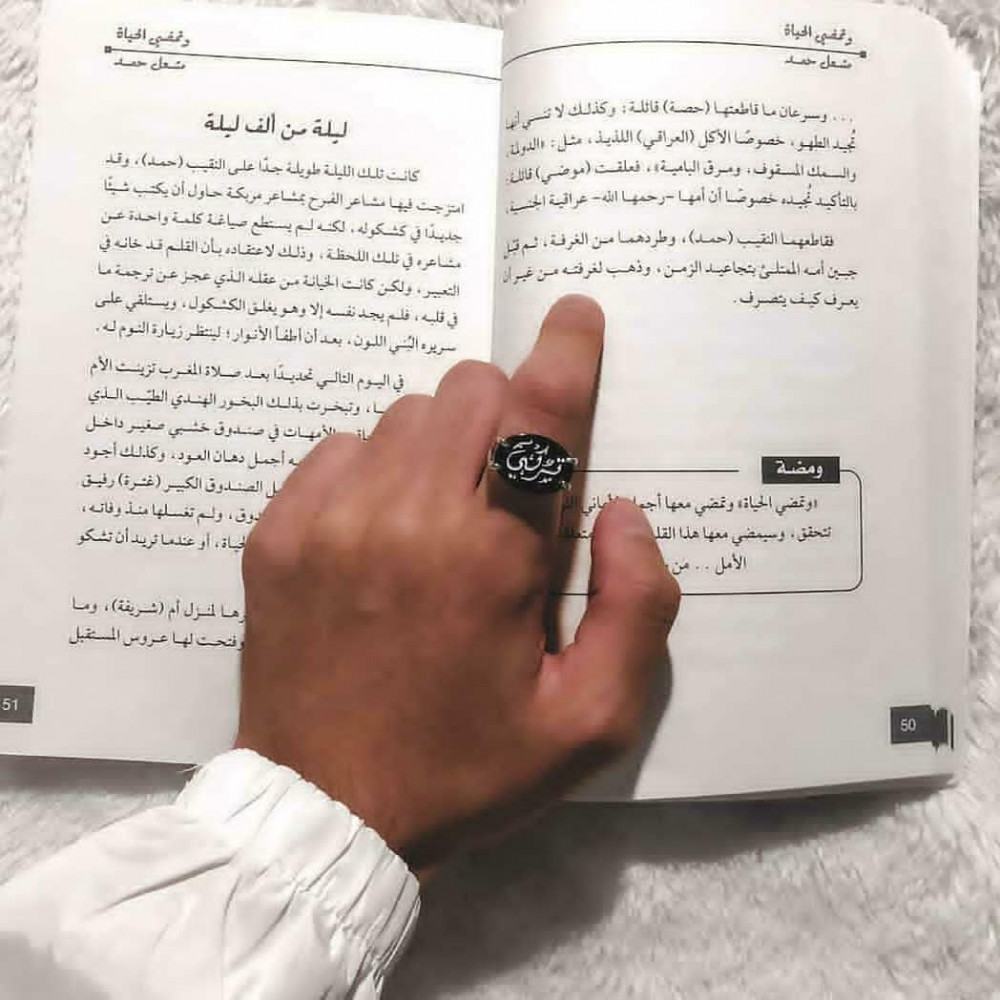 وتمضي الحياة
مشعل حمد
... وسرعان ما قاطعتها (حصة) قائلة: وكذلك لا تنسي أنها
تُجيد الطهو، خصوصًا الأكل (العراقي) اللذيذ، مثل: «الدولمة،
والسمك المسقوف، ومرق البامية»، فعلقت (موضي) قائلة:
بالتأكيد تُجيده خصوصًا أن أمها -رحمها الله- عراقية الجنسية.
فقاطعهما النقيب (حمد)، وطردهما من الغرفة، ثم قبّل
جبين أمه الممتلئ بتجاعيد الزمن، وذهب لغرفته من غير أن
يعرف كيف يتصرف.
ومضة
«وتمضي الحياة» وتمضي معها أجمل الأماني
تتحقق، وسيمضي معها هذا
الأمل .. من
50
وتمضي الحياة
مشعل حمد
ليلة من ألف ليلة
كانت تلك الليلة طويلة جدًا على النقيب (حمد)، وقد
امتزجت فيها مشاعر الفرح بمشاعر مربكة حاول أن يكتب شيئًا
جديدًا في كشكوله، لكنه لم يستطع صياغة كلمة واحدة عن
مشاعره في تلك اللحظة، وذلك لاعتقاده بأن القلم قد خانه في
التعبير، ولكن كانت الخيانة من عقله الذي عجز عن ترجمة ما
في قلبه، فلم يجد نفسه إلا وهو يغلق الكشكول، ويستلقي على
سريره البُني اللون، بعد أن أطفأ الأنوار؛ لينتظر زيارة النوم له.
في اليوم التالي تحديدًا بعد صلاة المغرب تزينت الأم
وتبخرت بذلك البخور الهندي الطيّب الذي
الأمهات في صندوق خشبي صغير داخل
أجمل دهان العود، وكذلك أجود
الصندوق الكبير (غترة) رفيق
ولم تغسلها منذ وفاته،
أو عندما تريد أن تشكو
لمنزل أم (شريفة)، وما
وفتحت لها عروس المستقبل
51